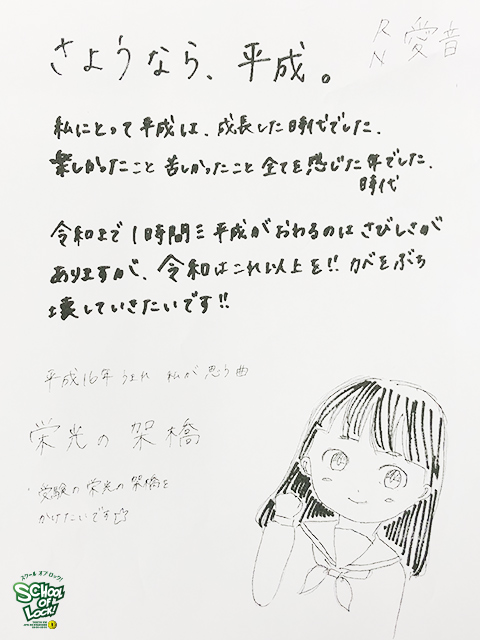 RN 愛音
さようなら、平成。
私にとって平成は、成長した時代でした。
楽しかったこと苦しかったこと全てを感じた年でした。
時代
令和まで1時間ミ平成がおわるのはさびしさが
ありますが、令和はこれ以上を!!カベをぶち
壊していきたいです!!
平成16年うまれ 私が思う曲
栄光の架橋
・受験の栄光の架橋を
かけたいです☆
スクールオブロック!
SCHOOL
OF
LOCK!